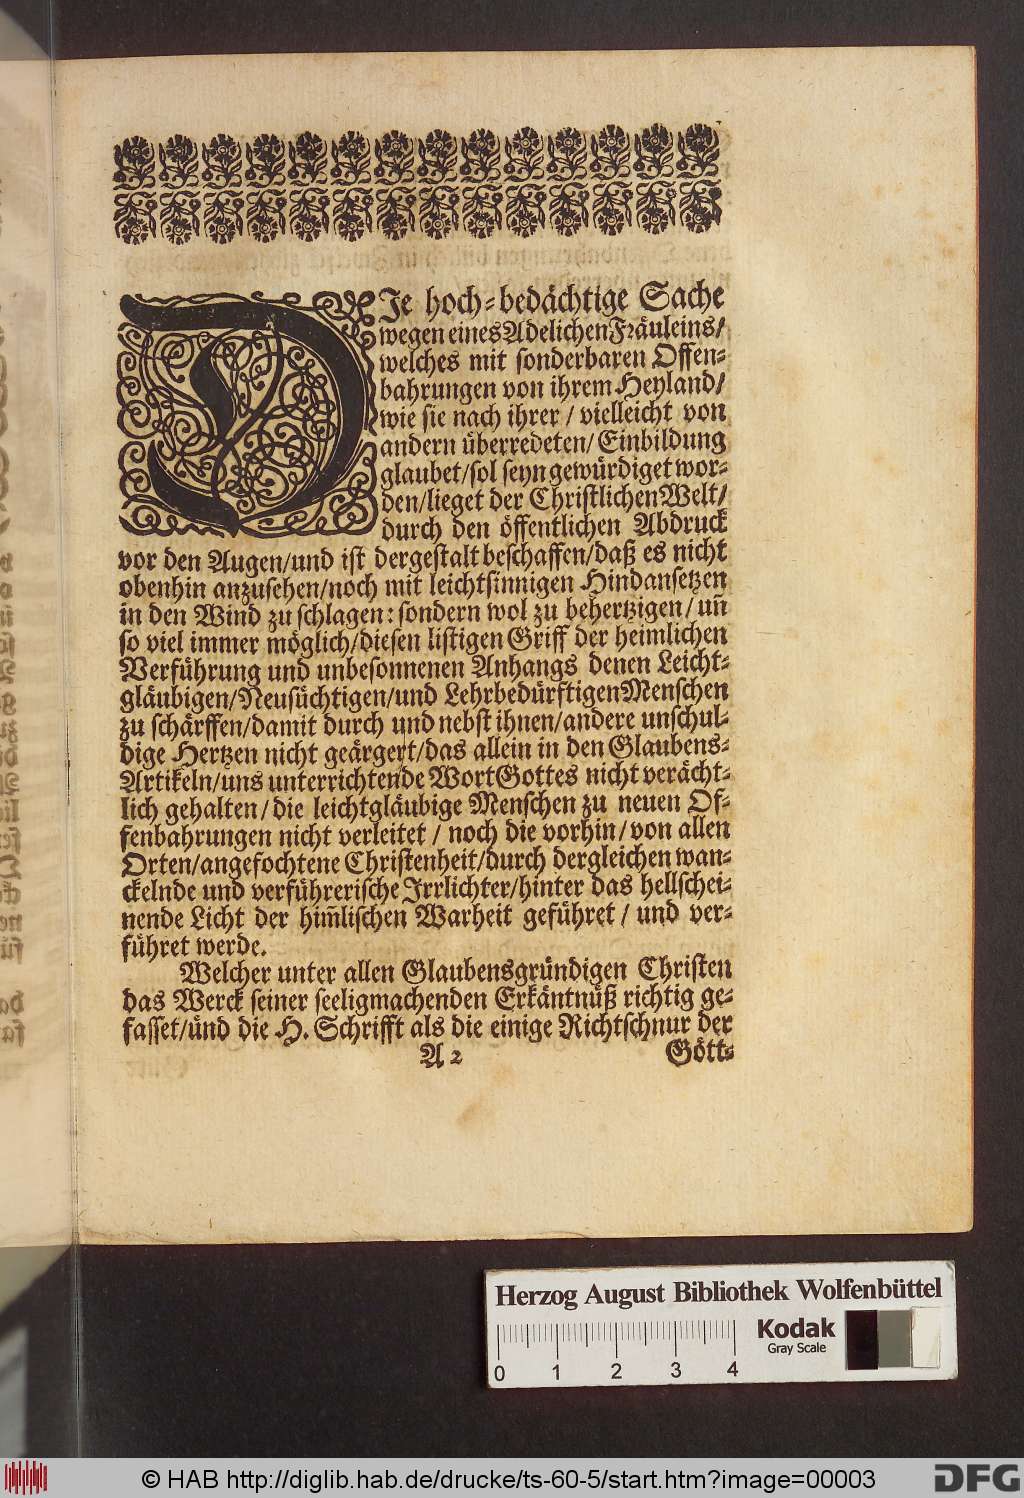 DIe hoch-bedächtige Sache
wegen eines Adelichen Fräuleins/
welches mit sonderbaren Offen-
bahrungen von ihrem Heyland/
wie sie nach ihrer / vielleicht von
andern überredeten/ Einbildung
glaubet/ sol seyn gewürdiget wor-
den/ lieget der Christlichen Welt/
durch den öffentlichen Abdruck
vor den Augen/ und ist dergestalt beschaffen/ daß es nicht
obenhin anzusehen/ noch mit leichtsinnigen Hindansetzen
in den Wind zu schlagen: sondern wol zu behertzigen/ uñ
so viel immer möglich/ diesen listigen Griff der heimlichen
Verführung und unbesonnenen Anhangs denen Leicht-
gläubigen/ Neusüchtigen/ und Lehrbedürftigen Menschen
zu schärffen/ damit durch und nebst ihnen/ andere unschul-
dige Hertzen nicht geärgert/ das allein in den Glaubens-
Artikeln/ uns unterrichtende Wort Gottes nicht verächt-
lich gehalten/ die leichtgläubige Menschen zu neuen Of-
fenbahrungen nicht verleitet / noch die vorhin/ von allen
Orten/ angefochtene Christenheit/ durch dergleichen wan-
ckelnde und verführerische Irrlichter/ hinter das hellschei-
nende Licht der him̃lischen Warheit geführet / und ver-
führet werde.
Welcher unter allen Glaubensgründigen Christen
das Werck seiner seeligmachenden Erkäntnüß richtig ge-
fasset/ ünd die H. Schrifft als die einige Richtschnur der
A 2 Gött-
Herzog August Bibliothek Wolfenbüttel
0 1 2 3 4
Kodak
Gray Scale
© HAB http://diglib.hab.de/drucke/ts-60-5/start.htm?image=00003
DFG